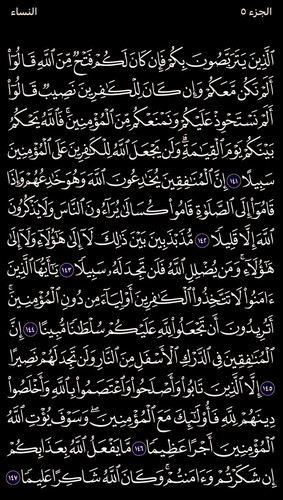 الجزء ٥ النساء
ٱلَّذِينَ يَتَرَبَّصُونَ بِكُمْ فَإِن كَانَ لَكُمْ فَتْحٌ مِّنَ ٱللَّهِ قَالُوٓا۟
أَلَمْ نَكُن مَّعَكُمْ وَإِن كَانَ لِلْكَٰفِرِينَ نَصِيبٌ قَالُوٓا۟
أَلَمْ نَسْتَحْوِذْ عَلَيْكُمْ وَنَمْنَعْكُم مِّنَ ٱلْمُؤْمِنِينَ ۚ فَٱللَّهُ يَحْكُمُ
بَيْنَكُمْ يَوْمَ ٱلْقِيَٰمَةِ ۗ وَلَن يَجْعَلَ ٱللَّهُ لِلْكَٰفِرِينَ عَلَى ٱلْمُؤْمِنِينَ
سَبِيلًا ١٤١ إِنَّ ٱلْمُنَٰفِقِينَ يُخَٰدِعُونَ ٱللَّهَ وَهُوَ خَٰدِعُهُمْ وَإِذَا
قَامُوٓا۟ إِلَى ٱلصَّلَوٰةِ قَامُوا۟ كُسَالَىٰ يُرَآءُونَ ٱلنَّاسَ وَلَا يَذْكُرُونَ
ٱللَّهَ إِلَّا قَلِيلًا ١٤٢ مُّذَبْذَبِينَ بَيْنَ ذَٰلِكَ لَآ إِلَىٰ هَٰٓؤُلَآءِ وَلَآ إِلَىٰ
هَٰٓؤُلَآءِ ۚ وَمَن يُضْلِلِ ٱللَّهُ فَلَن تَجِدَ لَهُۥ سَبِيلًا ١٤٣ يَٰٓأَيُّهَا ٱلَّذِينَ
ءَامَنُوا۟ لَا تَتَّخِذُوا۟ ٱلْكَٰفِرِينَ أَوْلِيَآءَ مِن دُونِ ٱلْمُؤْمِنِينَ ۚ
أَتُرِيدُونَ أَن تَجْعَلُوا۟ لِلَّهِ عَلَيْكُمْ سُلْطَٰنًا مُّبِينًا ١٤٤ إِنَّ
ٱلْمُنَٰفِقِينَ فِى ٱلدَّرْكِ ٱلْأَسْفَلِ مِنَ ٱلنَّارِ وَلَن تَجِدَ لَهُمْ نَصِيرًا
١٤٥ إِلَّا ٱلَّذِينَ تَابُوا۟ وَأَصْلَحُوا۟ وَٱعْتَصَمُوا۟ بِٱللَّهِ وَأَخْلَصُوا۟
دِينَهُمْ لِلَّهِ فَأُو۟لَٰٓئِكَ مَعَ ٱلْمُؤْمِنِينَ ۖ وَسَوْفَ يُؤْتِ ٱللَّهُ
ٱلْمُؤْمِنِينَ أَجْرًا عَظِيمًا ١٤٦ مَّا يَفْعَلُ ٱللَّهُ بِعَذَابِكُمْ
إِن شَكَرْتُمْ وَءَامَنتُمْ ۚ وَكَانَ ٱللَّهُ شَاكِرًا عَلِيمًا ١٤٧